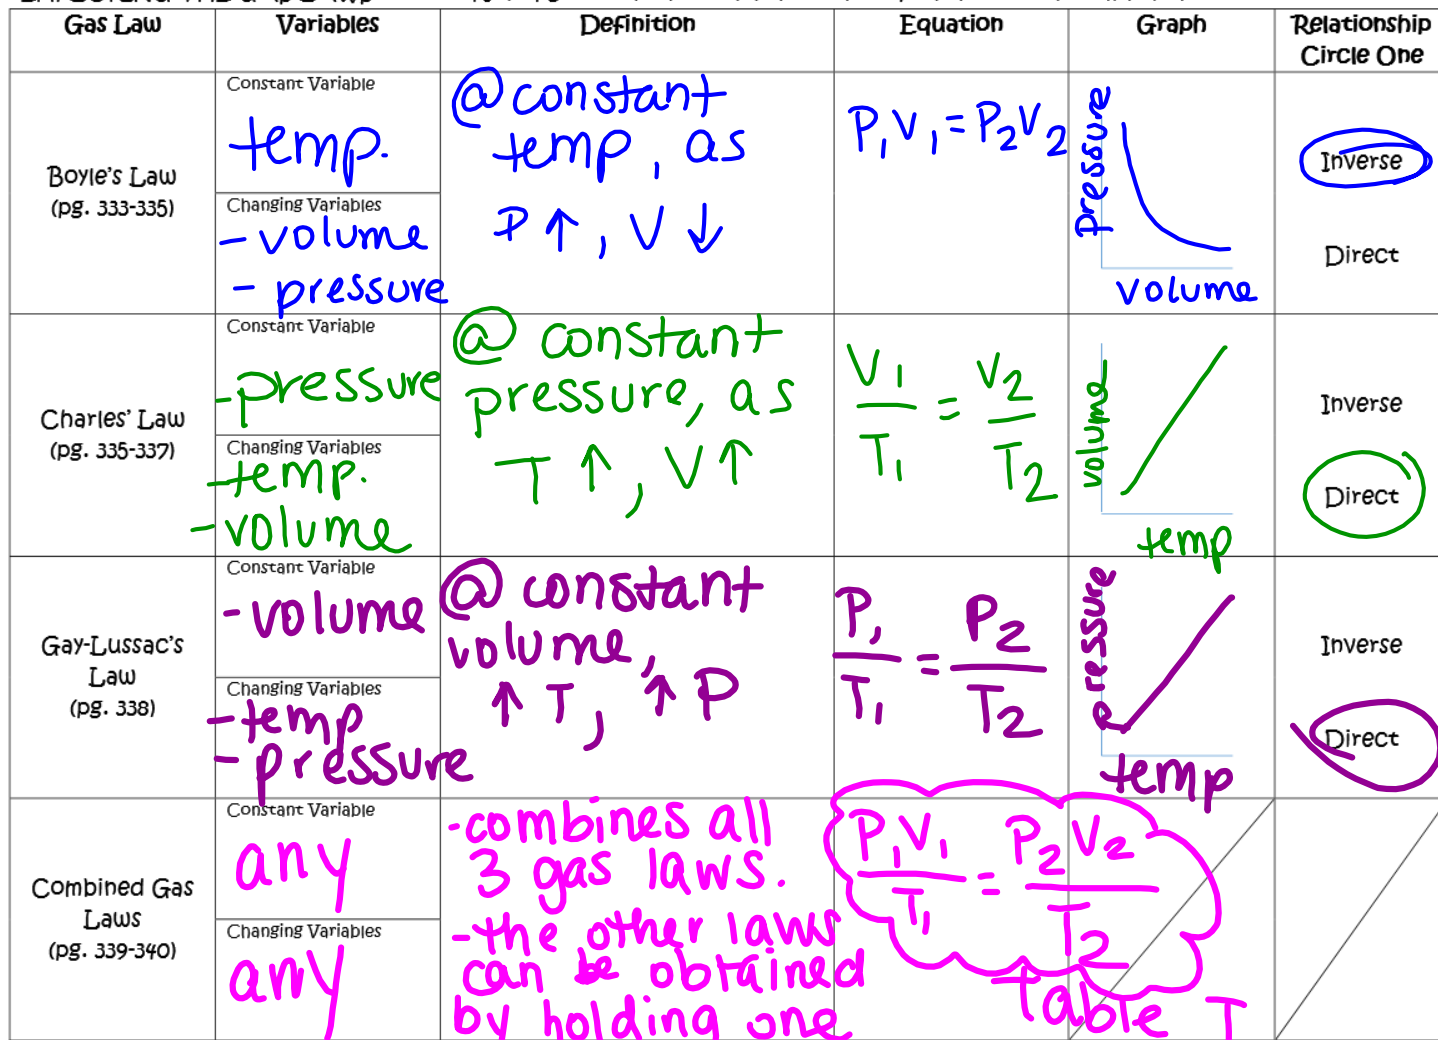 Gas Law
Variables
Definition
Equation
Graph
Relationship
Circle One
Boyle's Law
(pg. 333-335)
Constant Variable
temp.
Changing Variables
- volume
- pressure
@ constant
temp, as
P ↑, V ↓
P₁V₁ = P₂V₂
pressure
volume
Inverse
Direct
Charles' Law
(pg. 335-337)
Constant Variable
- pressure
Changing Variables
- temp.
- volume
@ constant
pressure, as
T ↑, V ↑
V₁/T₁ = V₂/T₂
volume
temp
Inverse
Direct
Gay-Lussac's
Law
(pg. 338)
Constant Variable
- volume
Changing Variables
- temp
- pressure
@ constant
volume,
↑ T, ↑ P
P₁/T₁ = P₂/T₂
pressure
temp
Inverse
Direct
Combined Gas
Laws
(pg. 339-340)
Constant Variable
any
Changing Variables
any
- combines all
3 gas laws.
- the other laws
can be obtained
by holding one
P₁V₁/T₁ = P₂V₂/T₂
Table T